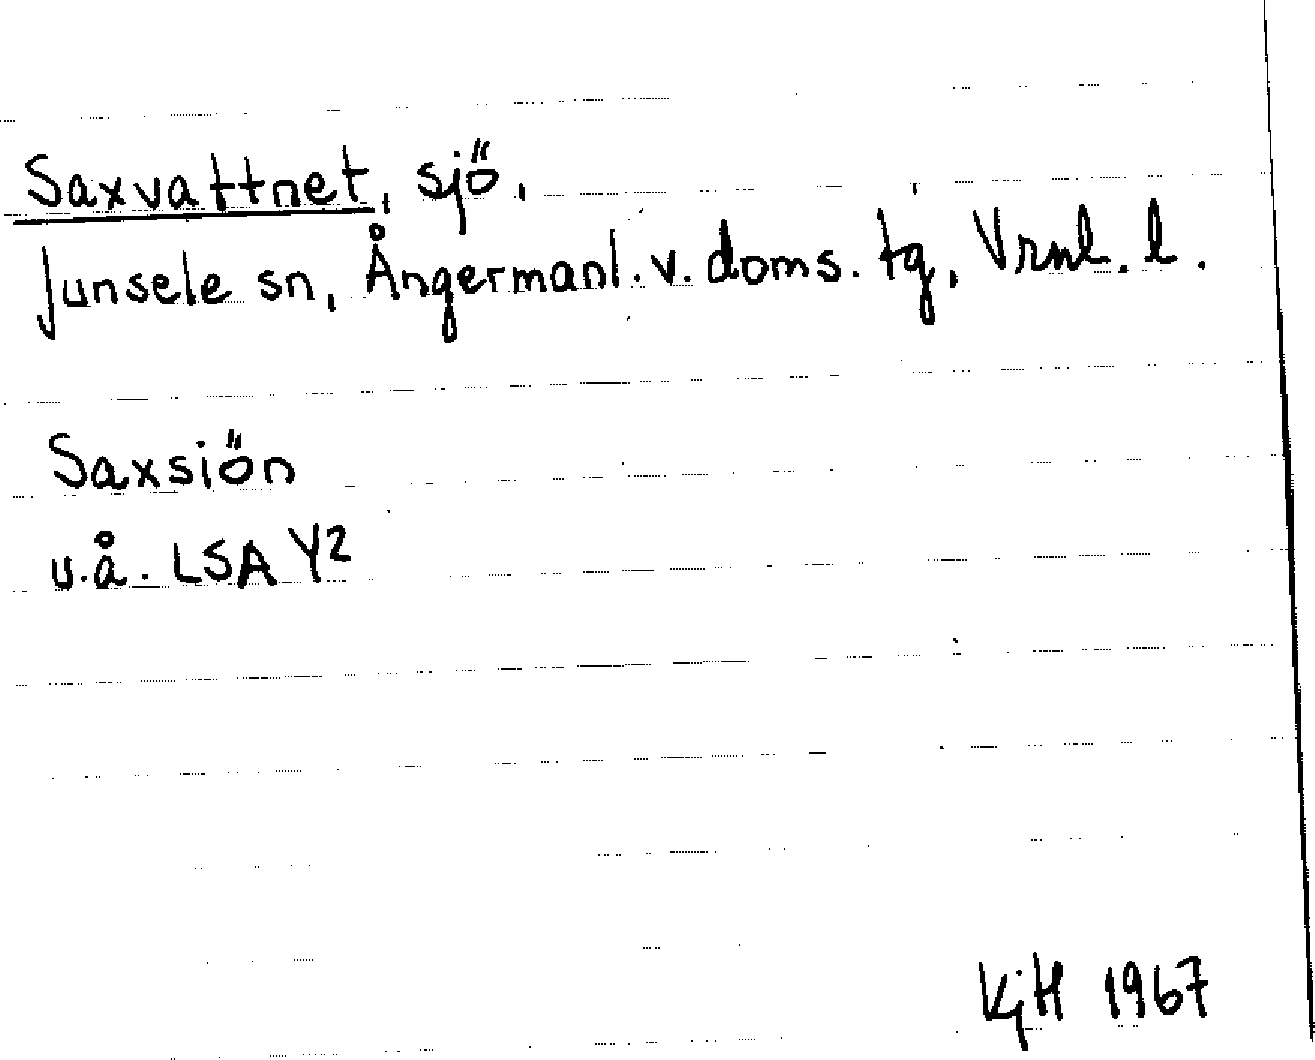 Saxvattnet, sjö,
Junsele sn, Ångermanl. v. doms. tg, Vrnl. l.
Saxsiön
u.å. LSA Y2
KjH 1967